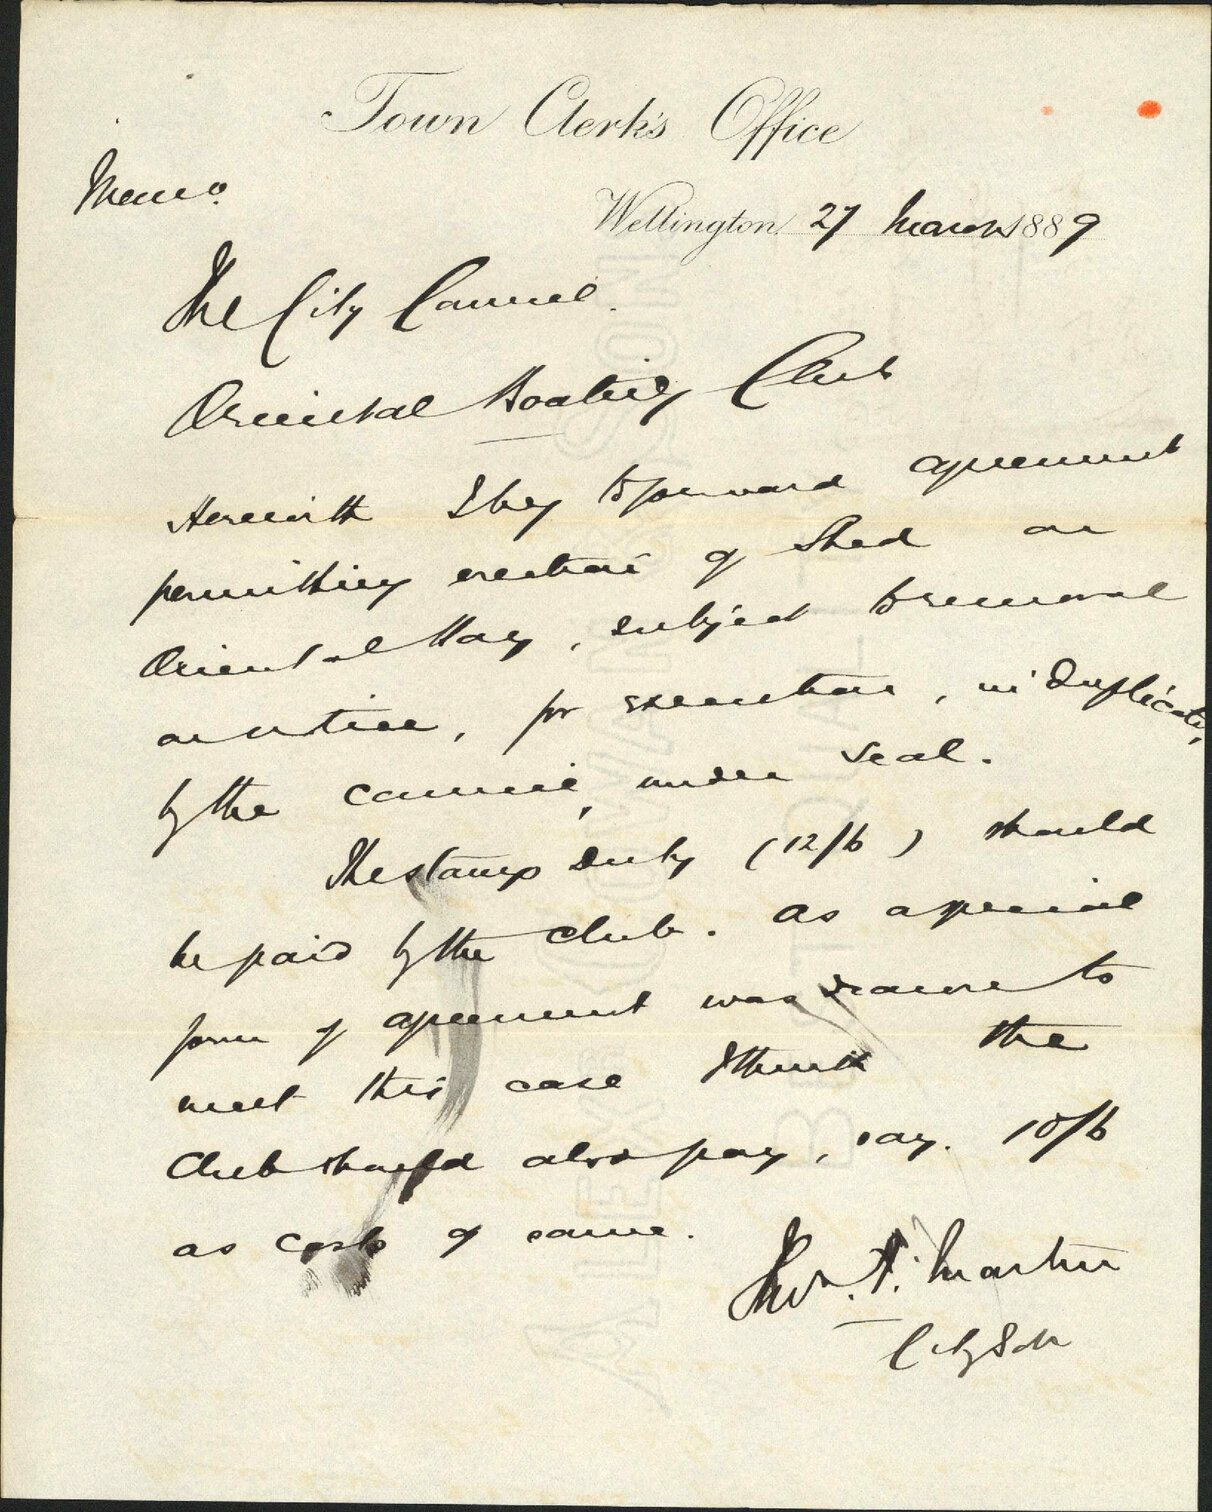 Town Clerk's Office
Memo.
Wellington 27 March 1889
The City Council.
Oriental Boating Club
Herewith I beg to forward agreement
permitting erection of Shed on
Oriental Bay, subject to removal
on notice, for execution, in duplicate,
by the council, under seal.
The stamp duty (12/6) should
be paid by the club. As a special
form of agreement was drawn to
meet this case I think the
Club should also pay, say. 10/6
as costs of same.
Thos. F. Martin
City Solr